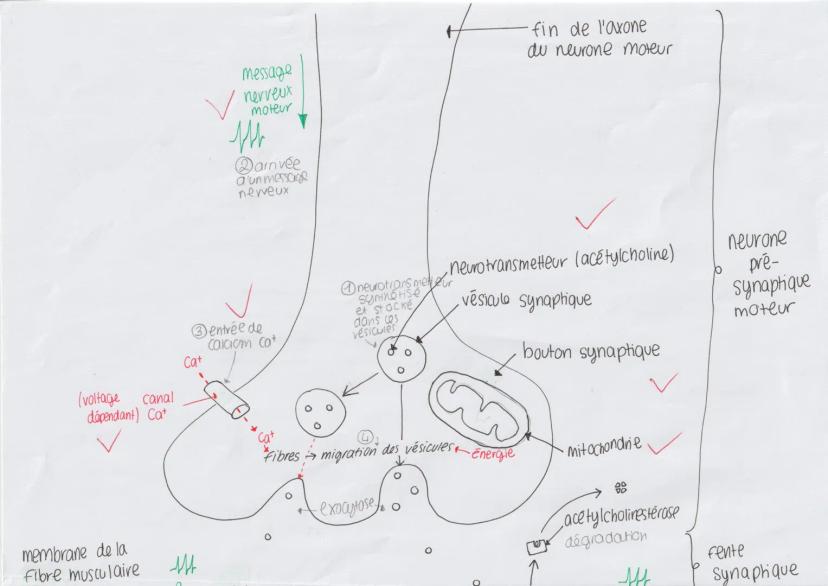 fin de l'axone
du neurone moteur
message
nerveux
moteur
② arrivée
d'un message
nerveux
neurone
pré-
synaptique
moteur
neurotransmetteur (acétylcholine)
① neurotransmetteur
synthétisé
et stocké
dans les
vésicules
vésicule synaptique
③ entrée de
calcium Ca⁺
bouton synaptique
Ca⁺
(voltage canal
dépendant) Ca⁺
Ca⁺
④
Fibres → migration des vésicules
Énergie
mitochondrie
exocytose
acétylcholinestérase
dégradation
membrane de la
fibre musculaire
fente
synaptique